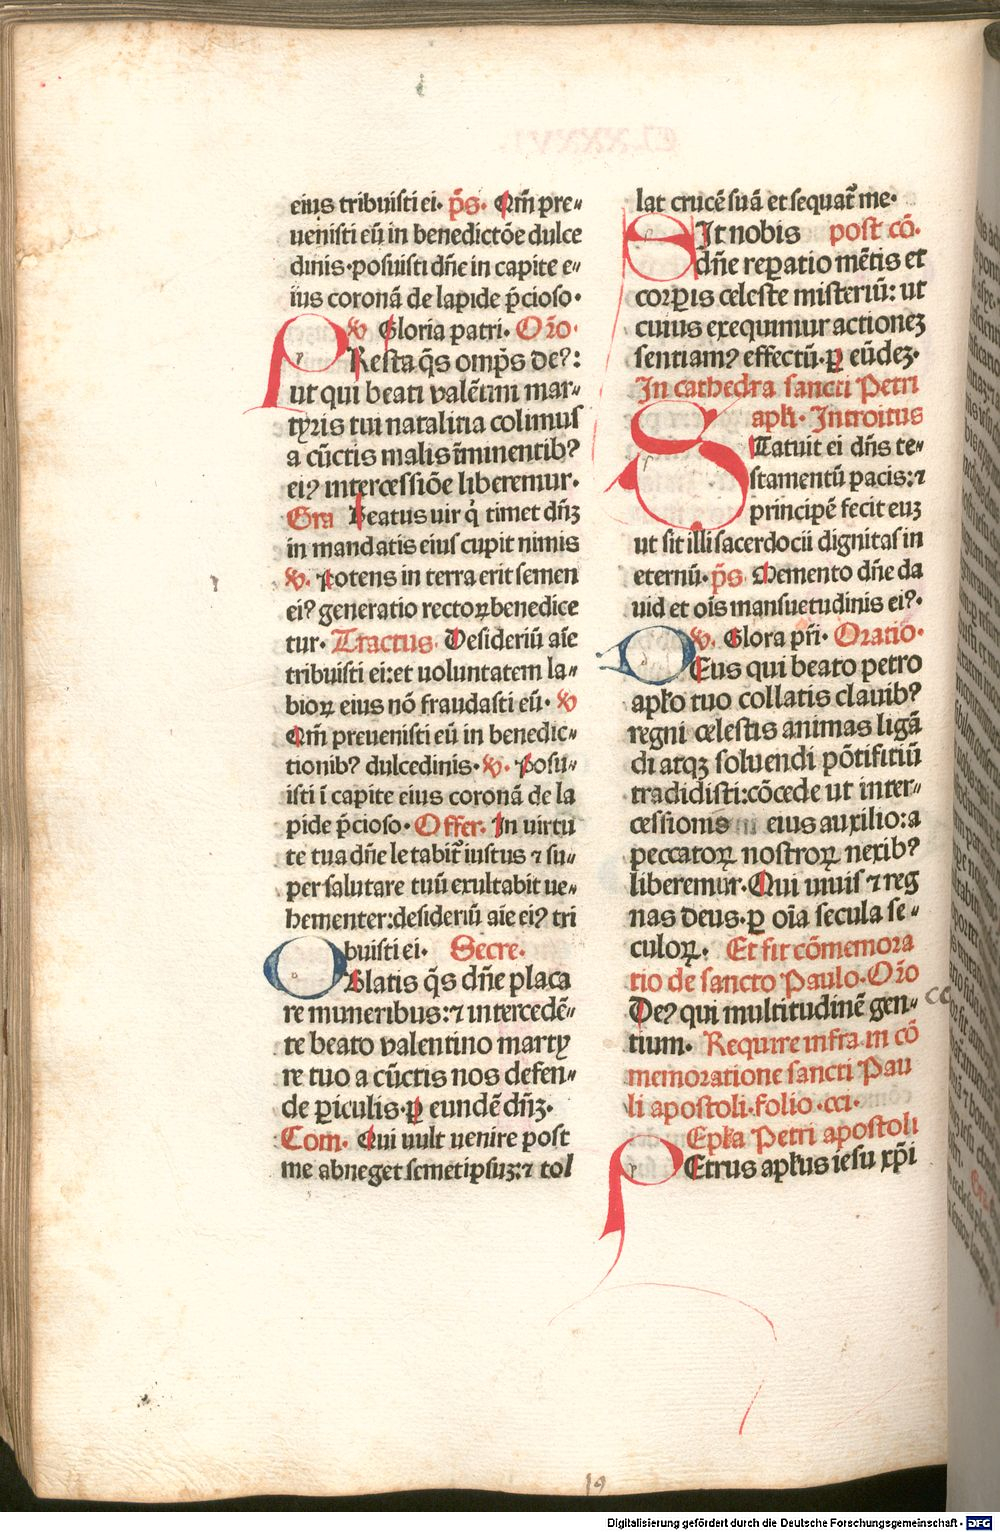 eius tribuisti ei. p̄s. Qm̄ pre⸗
uenisti eū in benedictōe dulce
dinis.posuisti dn̄e in capite e⸗
ius coronā de lapide p̄cioso.
℣ Gloria patri. Or̄o.
PResta q̄s omp̄s deꝰ:
ut qui beati valētini mar⸗
tyris tui natalitia colimus
a cūctis malis īminentibꝰ
eiꝰ intercessiōe liberemur.
Gra Beatus uir q̇ timet dn̄ꝫ
in mandatis eius cupit nimis
℣. Potens in terra erit semen
eiꝰ generatio rectoꝝ benedice
tur. Tractus. Desideriū aīe
tribuisti ei:et uoluntatem la⸗
bioꝝ eius nō fraudasti eū. ℣
Qm̄ preuenisti eū in benedic⸗
tionibꝰ dulcedinis. ℣. Posu⸗
isti ī capite eius coronā de la
pide p̄cioso. Offer. In uirtu
te tua dn̄e letabit᷑ iustus ⁊ su⸗
per salutare tuū exultabit ue⸗
hementer:desideriū aīe eiꝰ tri
buisti ei. Secre.
OBlatis q̄s dn̄e placa
re muneribus:⁊ intercedē⸗
te beato valentino marty
re tuo a cūctis nos defen⸗
de ꝑiculis.ꝑ eundē dn̄ꝫ.
Com. Qui uult uenire post
me abneget semetipsuꝫ:⁊ tol
lat crucē suā et sequat᷑ me.
SIt nobis post cō.
dn̄e reꝑatio mētis et
corꝑis celeste misteriū: ut
cuius exequimur actioneꝫ
sentiamꝰ effectū.ꝑ eūdeꝫ.
In cathedra sancti Petri
apƚi. Introitus
STatuit ei dn̄s te⸗
stamentū pacis:⁊
principē fecit euꝫ
ut sit illi sacerdocii dignitas in
eternū. p̄s. Memento dn̄e da
uid et oīs mansuetudinis eiꝰ.
℣. Glora pr̄i. Oratio.
DEus qui beato petro
apƚo tuo collatis clauibꝰ
regni celestis animas ligā
di atqꝫ soluendi pōtifitiū
tradidisti:cōcede ut inter⸗
cessionis eius auxilio:a
peccatoꝝ nostroꝝ nexibꝰ
liberemur.Qui uiuis ⁊ reg
nas deus.ꝑ oīa secula se⸗
culoꝝ. Et fit cōmemora
tio de sancto Paulo. Or̄o
Deꝰ qui multitudinē gen⸗
tium. Require infra in cō
memoratione sancti Pau
li apostoli.folio.cci.
Epƚa Petri apostoli
PEtrus apƚus iesu xp̄i
19
Digitalisierung gefördert durch die Deutsche Forschungsgemeinschaft - DFG